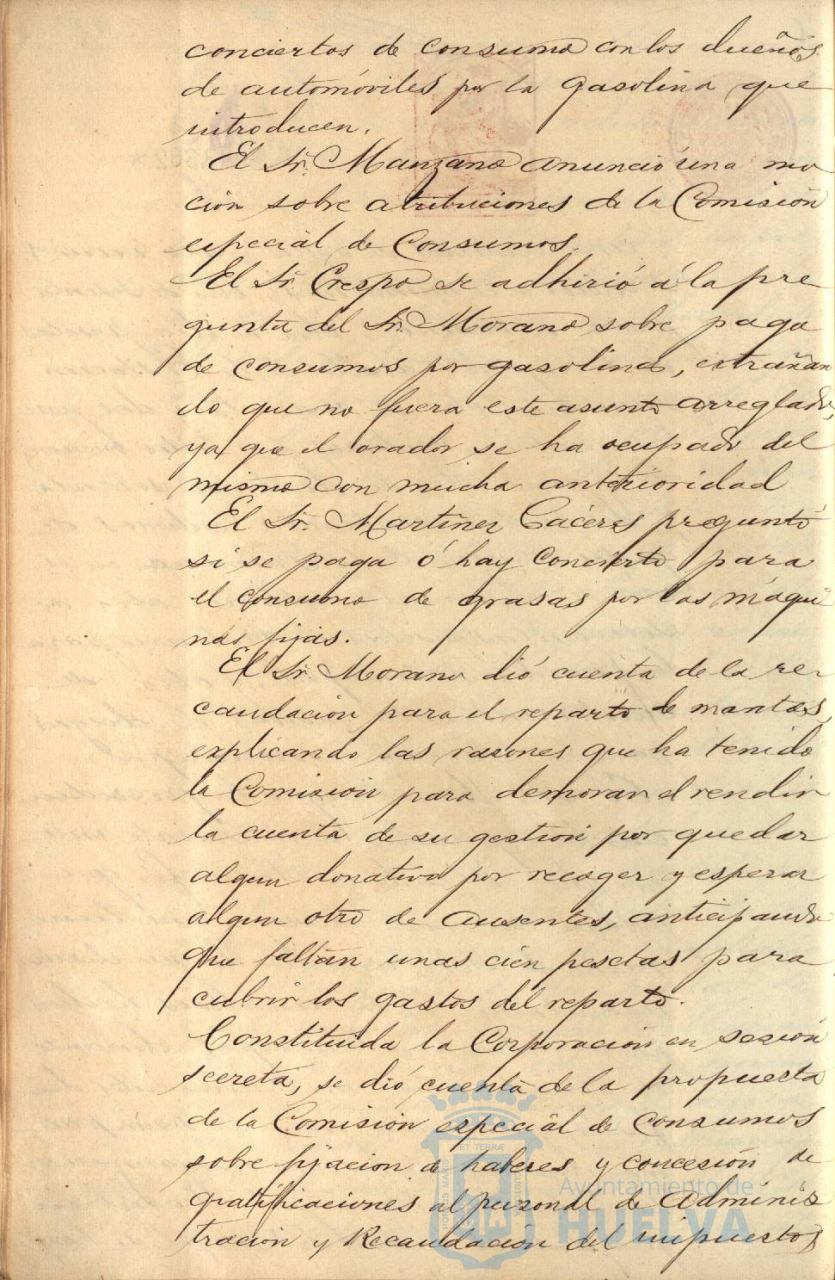 conciertos de consumo con los dueños
de automóviles por la gasolina que
introducen.
El Sr. Manzano anunció una mo
ción sobre atribuciones de la Comisión
especial de Consumos.
El Sr. Crespo se adhirió á la pre
gunta del Sr. Morano sobre pago
de consumos por gasolina, extrañan
do que no fuera este asunto arreglado,
ya que el orador se ha ocupado del
mismo con mucha anterioridad
El Sr. Martinez Cáceres preguntó
si se paga ó hay concierto para
el consumo de grasas por las máqui
nas fijas.
El Sr. Morano dió cuenta de la re-
caudación para el reparto de mantas,
explicando las razones que ha tenido
la Comisión para demorar el rendir
la cuenta de su gestión por quedar
algun donativo por recoger y esperar
algun otro de ausentes, anticipando
que faltan unas cien pesetas para
cubrir los gastos del reparto.
Constituida la Corporación en sesión
secreta, se dió cuenta de la propuesta
de la Comisión especial de consumos
sobre fijacion de haberes y concesión de
gratificaciones al personal de Adminis
tración y Recaudación del impuesto,
Ayuntamiento de
HUELVA